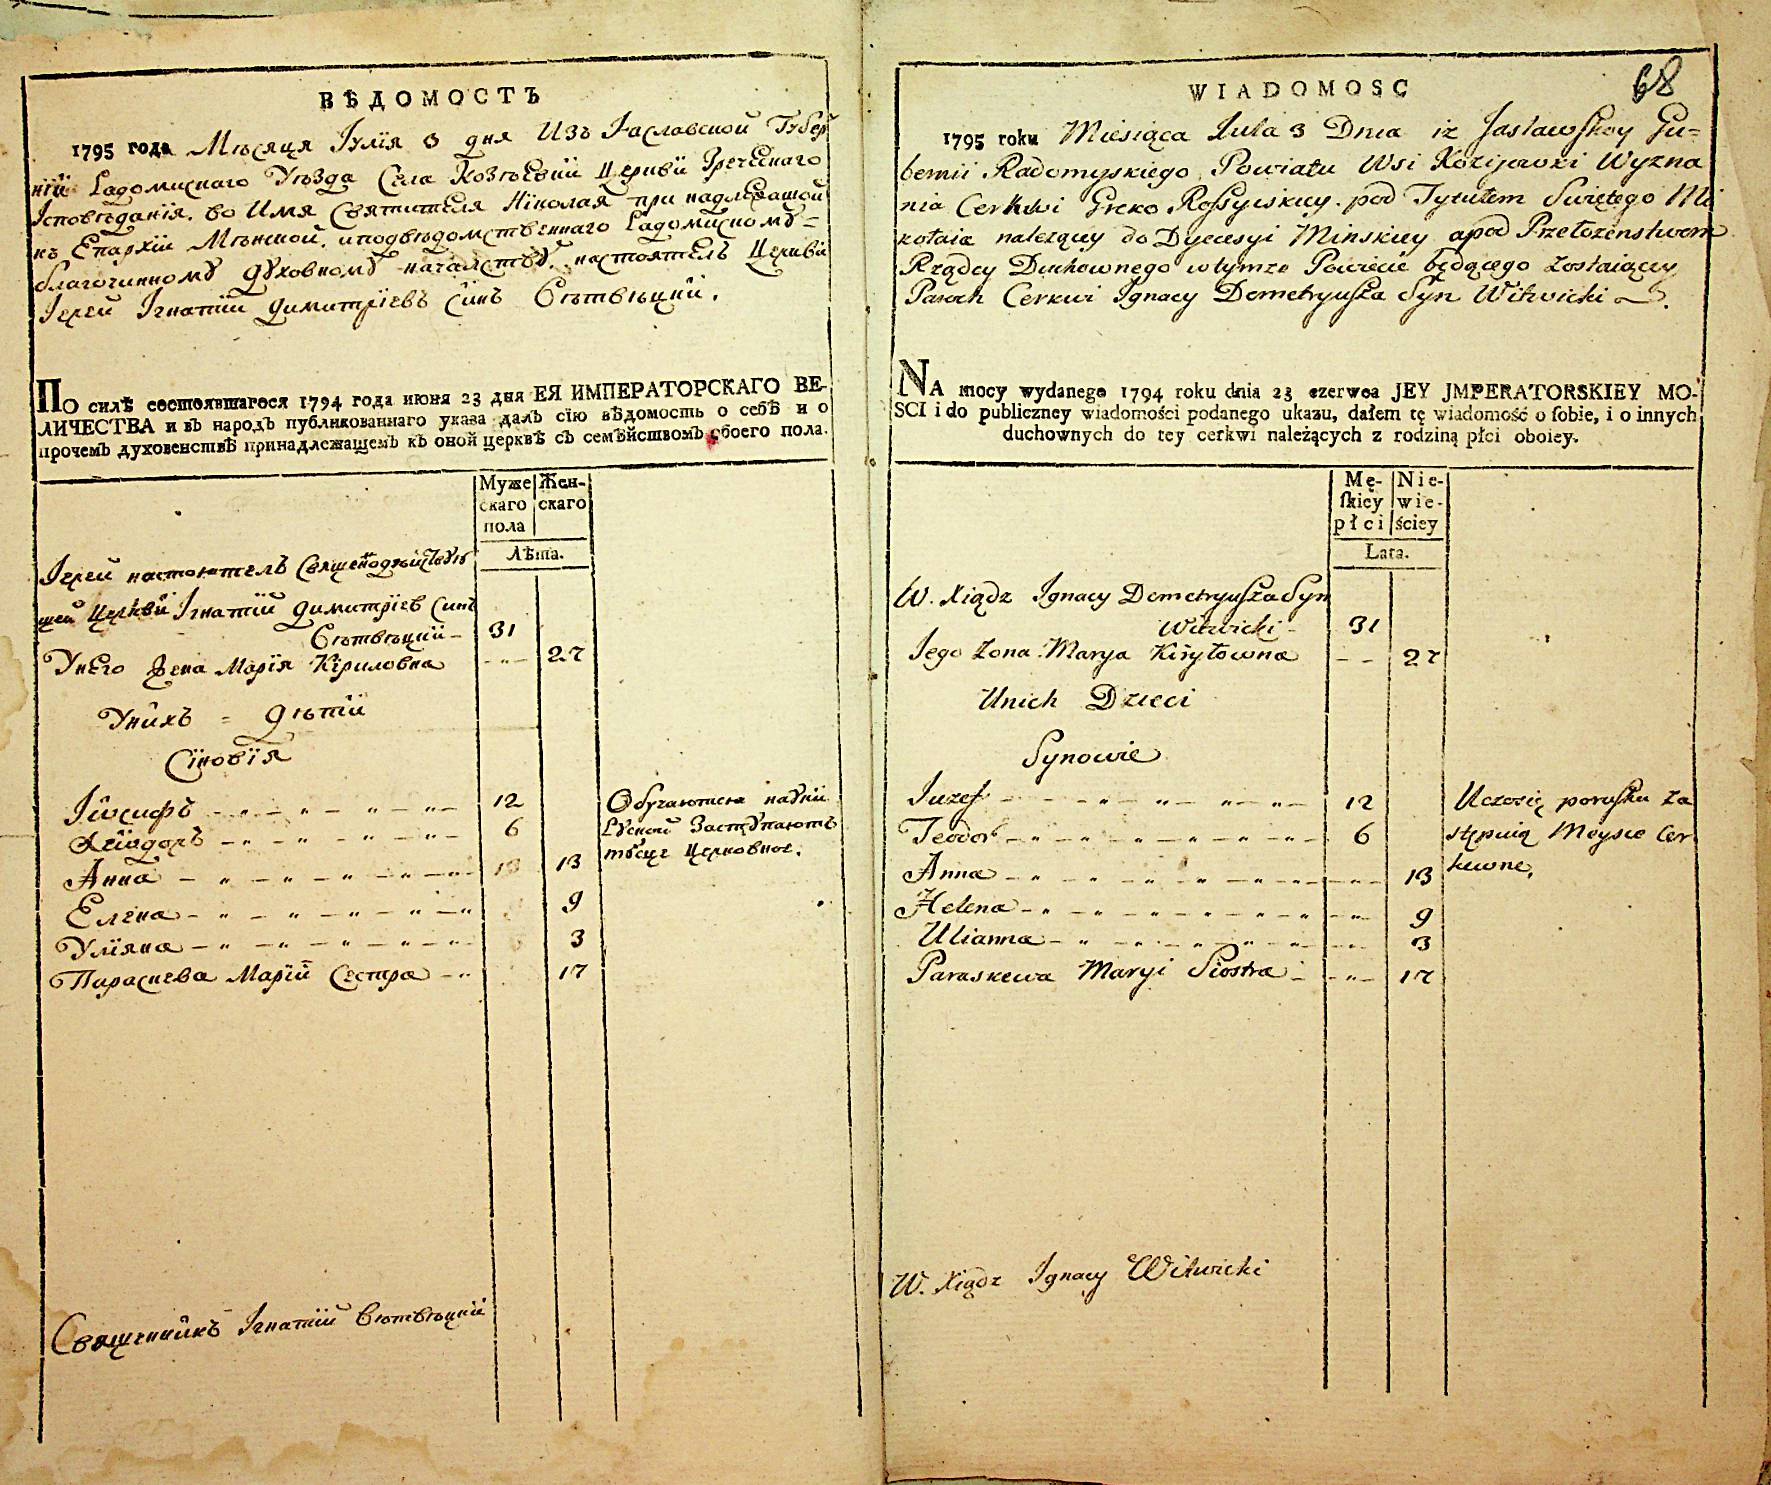 ВѢДОМОСТЬ
1795 года Мѣсяця Іулїя 3 дня Изъ Іаславской Губер
нїй Радомиснаго Уѣзда Села Козѣевки Церкви Греческаго
Ісповѣданія. во Имя Святителя Ніколая при надлежащой
къ Епархїи Мѣнской. иподвѣдомственнаго Радомисному=
благочинному духовному началству. настоятель Церкви
Іерей Ігнатїй Димитрїевъ Сїнъ Вѣтвѣцкїй.
По силѣ состоявшагося 1794 года июня 23 дня ЕЯ ИМПЕРАТОРСКАГО ВЕ-
ЛИЧЕСТВА и въ народъ публикованнаго указа далъ сію вѣдомость о себѣ и о
прочемъ духовенствѣ принадлежащемъ къ оной церквѣ съ семѣйствомъ обоего пола.
Муже скаго пола
Жен-скаго
Лѣта.
Іерей настоятель Священодѣйствую
щей Церкви Ігнатїй Димитрїев Синъ
Вѣтвѣцкїй – 31
Унего Жена Марїя Кїриловна - „ - 27
Унихъ = Дѣтїй
Сїновїя
Іѡсифъ – „ – „ – „ – „ – 12 Обучаютися науки
Ѳеѡдоръ – „ – „ – „ – „ – 6 Руской Заступаютъ
тѣсце Церковное.
Анна – „ – „ – „ – „ – 13 13
Елена – „ – „ – „ – „ – „ 9
Улїяна – „ – „ – „ – „ – „ 3
Параскева Марїй Сестра – „ 17
Священникъ Ігнатїй Вѣтвѣцкїй
68
WIADOMOSC
1795 roku Miesiąca Iula 3 Dnia iz Jasławskoy Gu=
bernii Radomyskiego Powiatu Wsi Kozijowki Wyzna
nia Cerkwi Greko Rossyiskiey. pod Tytułem Swiętego Mi
kołaia nalezącey do Dyecesyi Minskiey apod Przełozenstwem
Rządcy Duchownego wtymze Powiecie będącego zostaiący
Paroch Cerkwi Ignacy Demetryusza Syn Witwicki.
NA mocy wydanego 1794 roku dnia 23 czerwca JEY JMPERATORSKIEY MO-
SCI i do publiczney wiadomości podanego ukazu, dałem tę wiadomość o sobie, i o innych
duchownych do tey cerkwi należących z rodziną płci oboiey.
Mę-skiey płci
Nie-wie-ściey
Lata.
W. Xiądz Ignacy Demetryusza Syn
Witwicki – 31
Iego Zona Marya Kiryłowna – – 27
Unich Dzieci
Synowie
Iuzef – – – „ – „ – „ – „ – 12 Uczosię porusku za
Teodor – „ – „ – „ – „ – „ – 6 stępuią Meysce Cer
kiewne.
Anna – „ – „ – „ – „ – „ – – „ – 13
Helena – „ – „ – „ – „ – „ – „ – 9
Ulianna – „ – „ – „ – „ – „ – 3
Paraskewa Maryi Siostra – – „ – 17
W. Xiądz Ignacy Witwicki